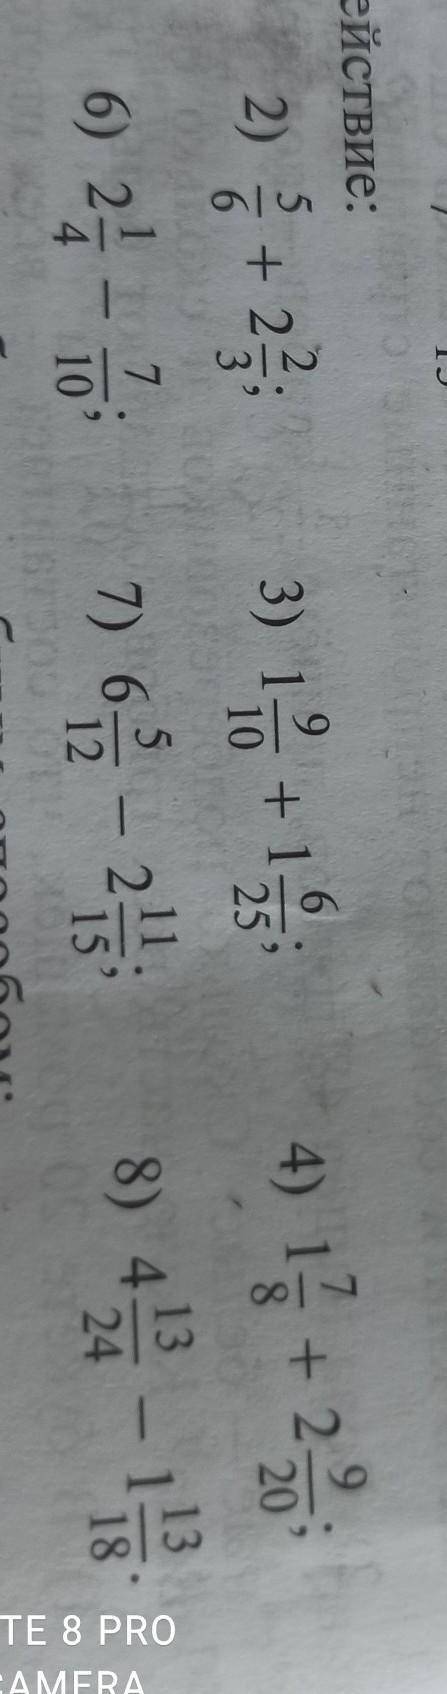 ействие:
2) 5/6 + 2 2/3; 3) 1 9/10 + 1 6/25; 4) 1 7/8 + 2 9/20;
6) 2 1/4 − 7/10; 7) 6 5/12 − 2 11/15; 8) 4 13/24 − 1 13/18.
TE 8 PRO
CAMERA